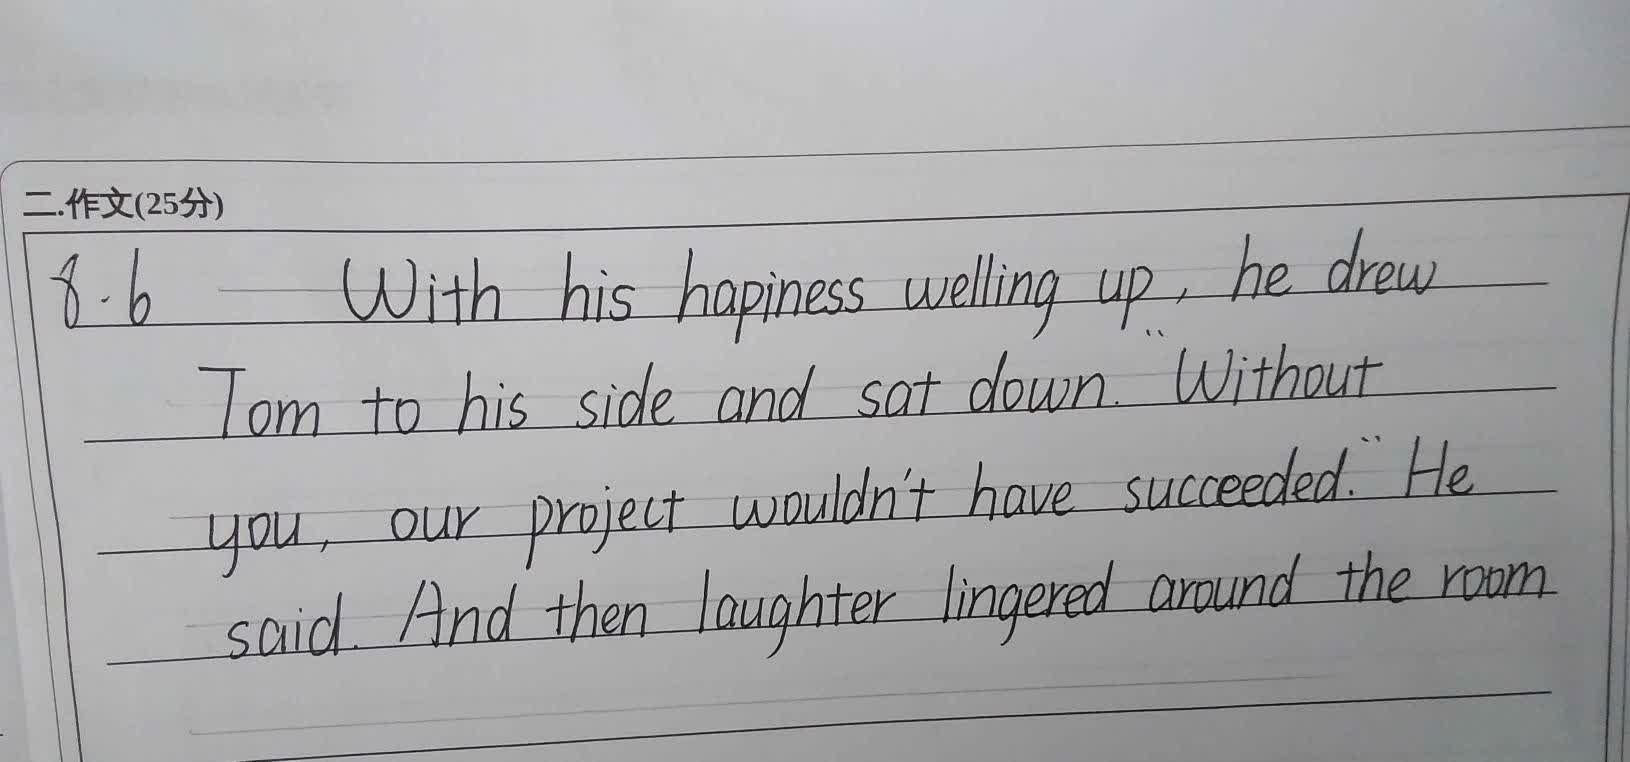 二.作文(25分)
8.6 With his hapiness welling up, he drew
Tom to his side and sat down. "Without
you, our project wouldn't have succeeded." He
said. And then laughter lingered around the room